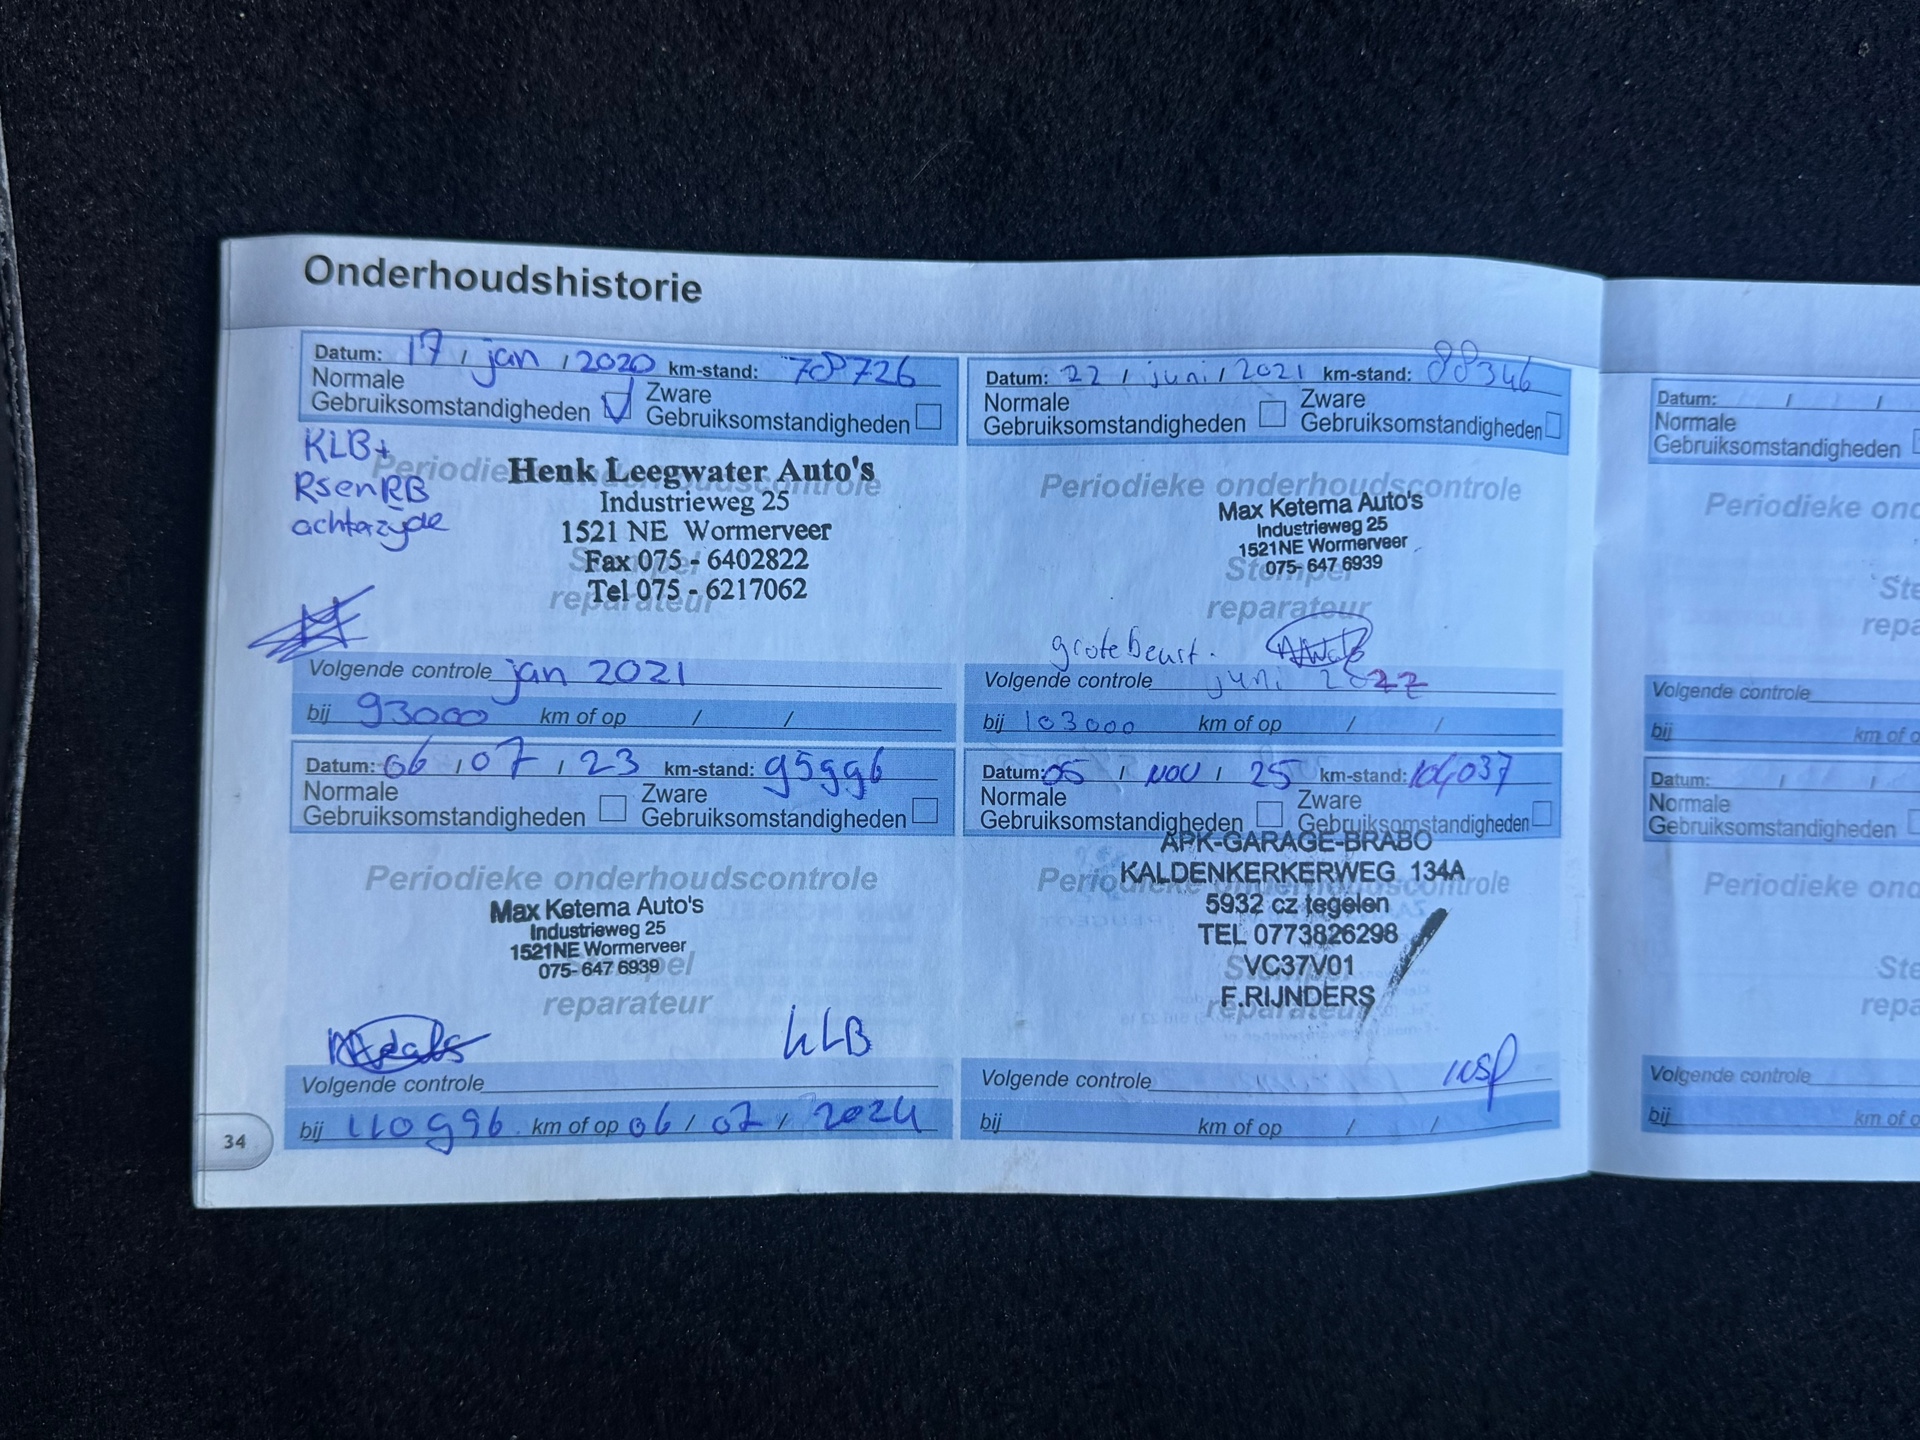 Onderhoudshistorie
Datum: 17 / jan / 2020 km-stand: 78726
Normale Gebruiksomstandigheden
Zware Gebruiksomstandigheden
KLB+
RsenRB
achterzyde
Periodieke onderhoudscontrole
Henk Leegwater Auto's
Industrieweg 25
1521 NE Wormerveer
Fax 075 - 6402822
Tel 075 - 6217062
Stempel
reparateur
Volgende controle jan 2021
bij 93000 km of op / /
Datum: 22 / juni / 2021 km-stand: 88346
Normale Gebruiksomstandigheden
Zware Gebruiksomstandigheden
Periodieke onderhoudscontrole
Max Ketema Auto's
Industrieweg 25
1521NE Wormerveer
075- 647 6939
Stempel
reparateur
grote beurt.
Volgende controle juni 2022
bij 103000 km of op / /
Datum: 06 / 07 / 23 km-stand: 95996
Normale Gebruiksomstandigheden
Zware Gebruiksomstandigheden
Periodieke onderhoudscontrole
Max Ketema Auto's
Industrieweg 25
1521NE Wormerveer
075- 647 6939
Stempel
reparateur
KLB
Volgende controle
bij 110996 km of op 06 / 07 / 2024
Datum: 05 / NOV / 25 km-stand: 104037
Normale Gebruiksomstandigheden
Zware Gebruiksomstandigheden
APK-GARAGE-BRABO
KALDENKERKERWEG 134A
Periodieke onderhoudscontrole
5932 cz tegelen
TEL 0773826298
VC37V01
F.RIJNDERS
Stempel
reparateur
Volgende controle
bij km of op / /
34
Datum: / /
Normale
Gebruiksomstandigheden
Periodieke
Volgende controle
bij km of
Datum: / /
Normale
Gebruiksomstandigheden
Periodieke
Volgende controle
bij km of